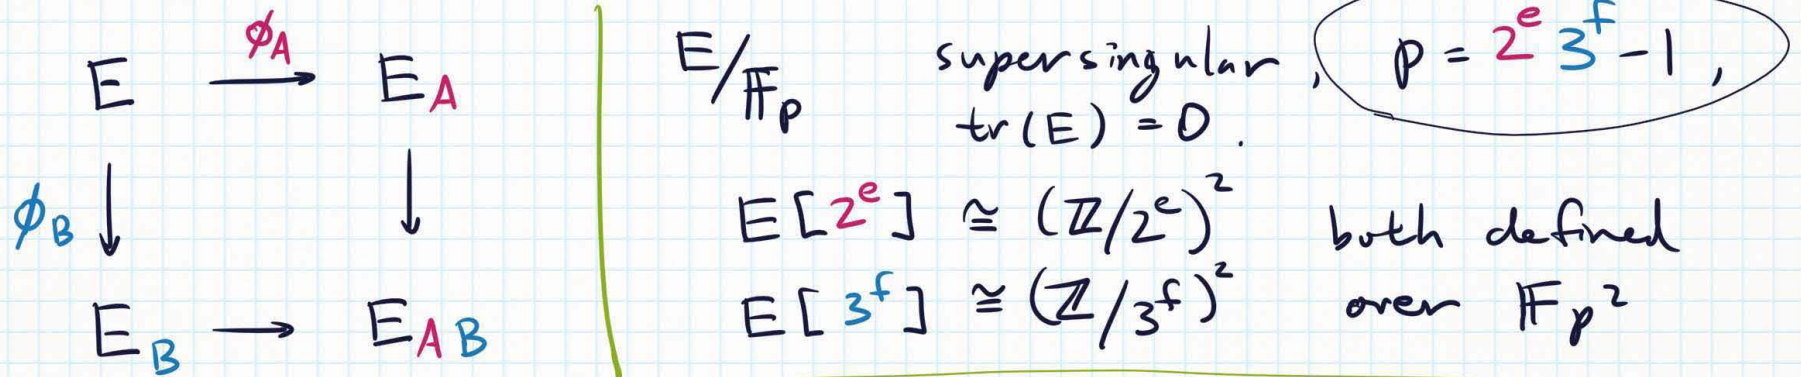 E →^{ϕ_A} E_A
ϕ_B ↓ ↓
E_B → E_{AB}
E/𝔽_p supersingular, p = 2^e 3^f - 1,
tr(E) = 0.
E[2^e] ≅ (ℤ/2^e)^2 both defined
E[3^f] ≅ (ℤ/3^f)^2 over 𝔽_{p^2}